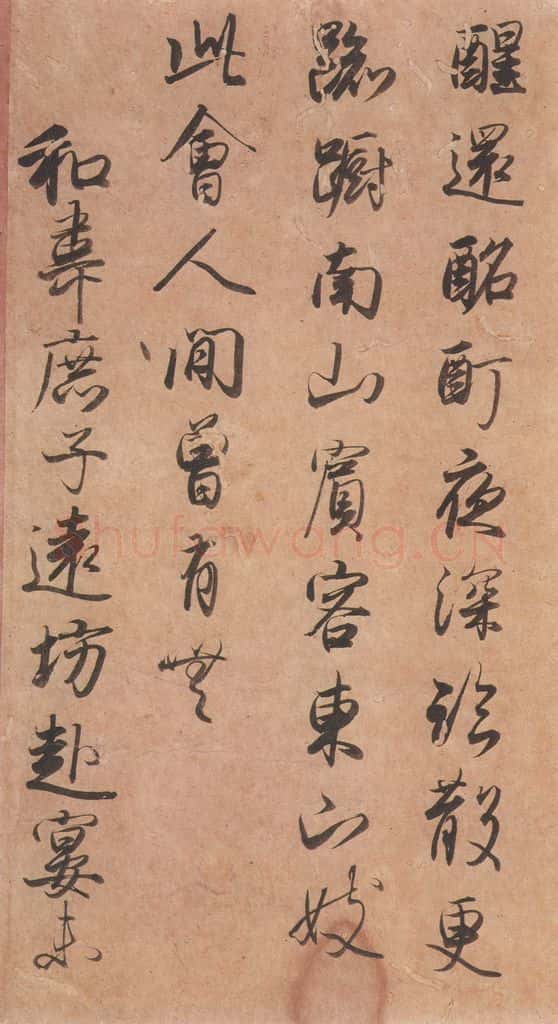 醒還酩酊夜深臨散更
踟躕南山賓客東山妓
此會人間曾有無
和韋庶子遠坊赴宴未
shufawang.CN